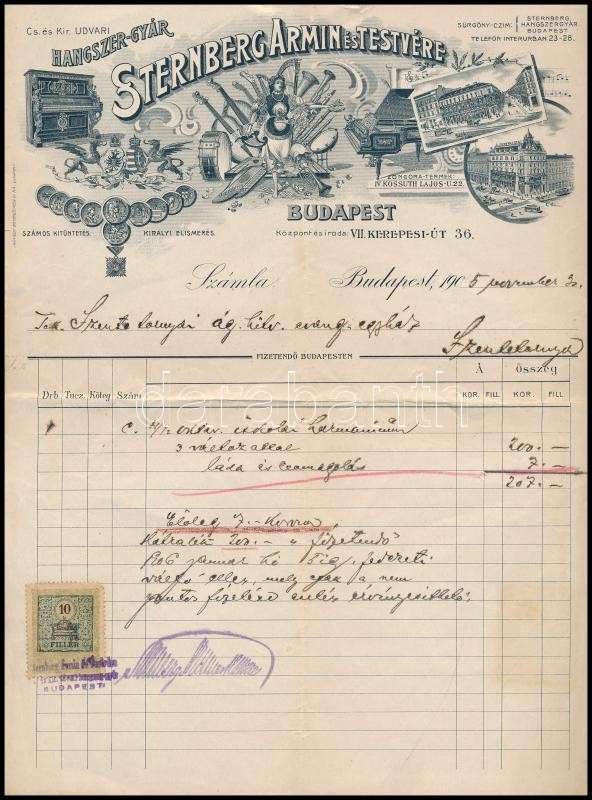 Cs. és Kir. UDVARI
HANGSZER-GYÁR
STERNBERG ÁRMIN ÉS TESTVÉRE
SÜRGÖNY-CZIM: STERNBERG HANGSZERGYÁR BUDAPEST
TELEFON INTERURBAN 23-28.
ZONGORA-TERMEK:
IV. KOSSUTH LAJOS-U. 22.
SZÁMOS KITÜNTETÉS.
KIRÁLYI ELISMERÉS.
BUDAPEST
Központ és iroda: VII. KEREPESI-ÚT 36.
Számla Budapest, 1905 november 30.
Tek. Szente tornyai ág. hitv. evang. egyház
Szentetornya
FIZETENDŐ BUDAPESTEN
Drb. Tucz. Köteg Szám Á ÖSSZEG
KOR. FILL. KOR. FILL.
1 C. 4/ oktav. iskolai harmonium
3 változattal 200.–
láda és csomagolás 7.–
207.–
Előleg 7.– Korona
Hátralék 200.– " fizetendő
1906 január hó fedezeti
váltó ellen, mely csak a nem
pontos fizetésre érvényesíthető.
10
FILLÉR
Sternberg Ármin és Testvére
BUDAPEST
darabanth